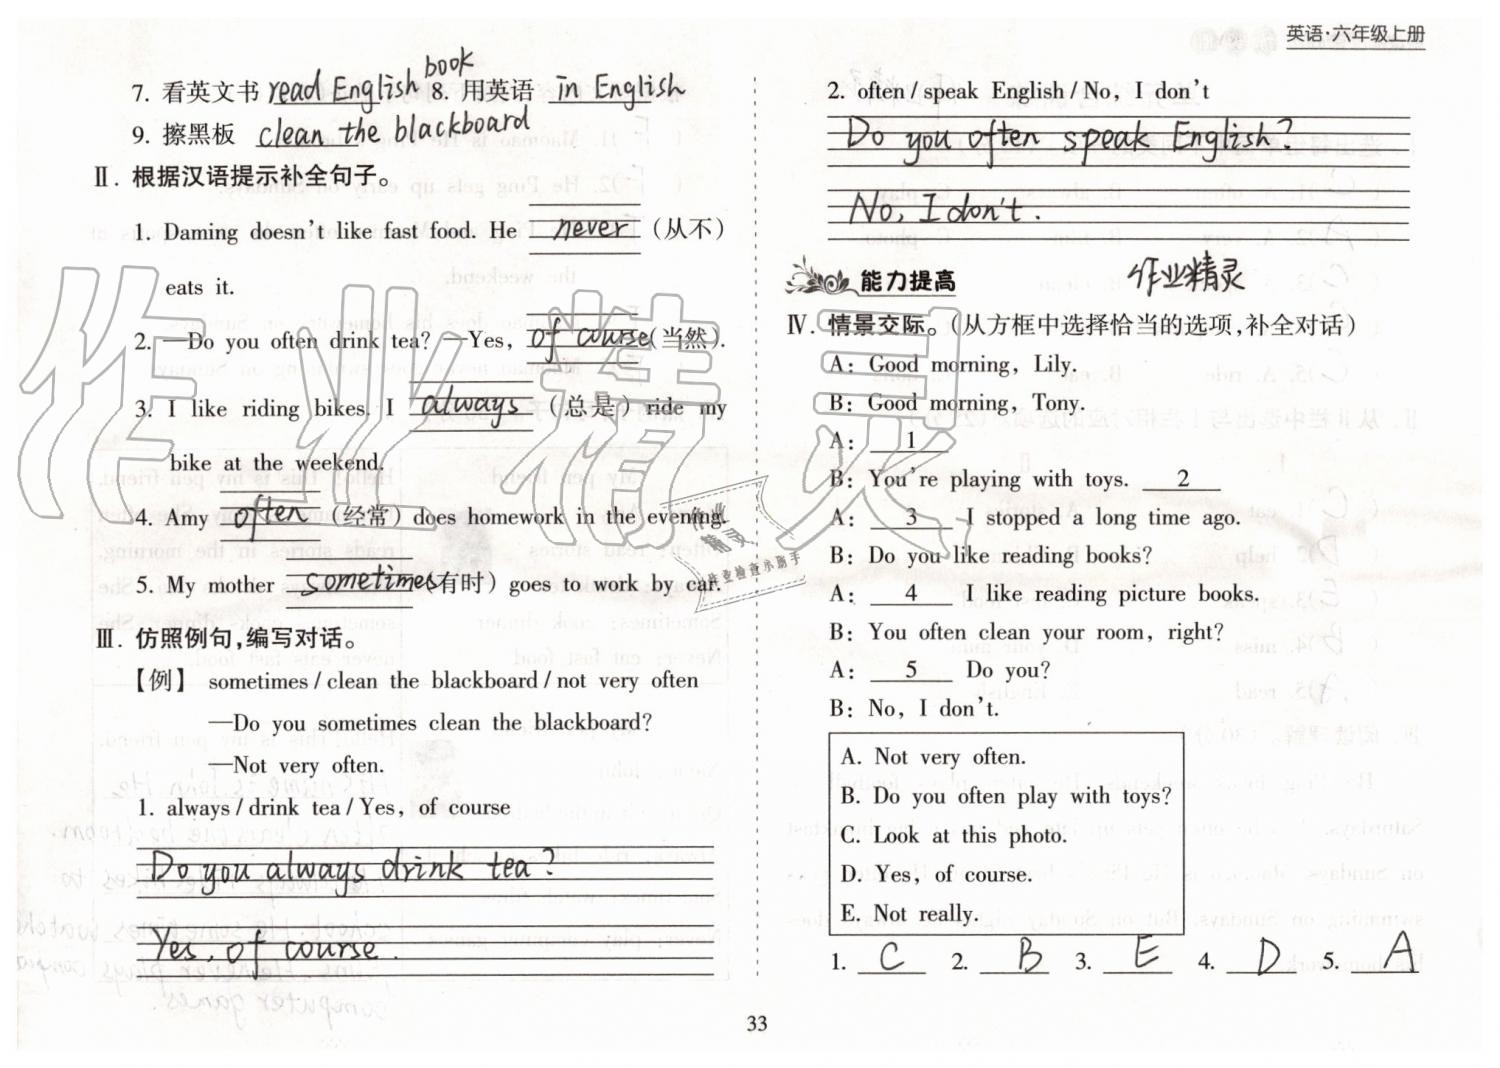 英语·六年级上册
7. 看英文书 read English book 8. 用英语 in English
9. 擦黑板 clean the blackboard
Ⅱ. 根据汉语提示补全句子。
1. Daming doesn't like fast food. He never (从不)
eats it.
2. —Do you often drink tea? —Yes, of course (当然).
3. I like riding bikes. I always (总是) ride my
bike at the weekend.
4. Amy often (经常) does homework in the evening.
5. My mother sometimes (有时) goes to work by car.
Ⅲ. 仿照例句,编写对话。
【例】 sometimes / clean the blackboard / not very often
—Do you sometimes clean the blackboard?
—Not very often.
1. always / drink tea / Yes, of course
Do you always drink tea?
Yes, of course.
2. often / speak English / No, I don't
Do you often speak English?
No, I don't.
能力提高
作业精灵
Ⅳ. 情景交际。(从方框中选择恰当的选项,补全对话)
A: Good morning, Lily.
B: Good morning, Tony.
A: 1
B: You're playing with toys. 2
A: 3 I stopped a long time ago.
B: Do you like reading books?
A: 4 I like reading picture books.
B: You often clean your room, right?
A: 5 Do you?
B: No, I don't.
A. Not very often.
B. Do you often play with toys?
C. Look at this photo.
D. Yes, of course.
E. Not really.
1. C 2. B 3. E 4. D 5. A
33
作业精灵
作业
精灵
作业检查小助手